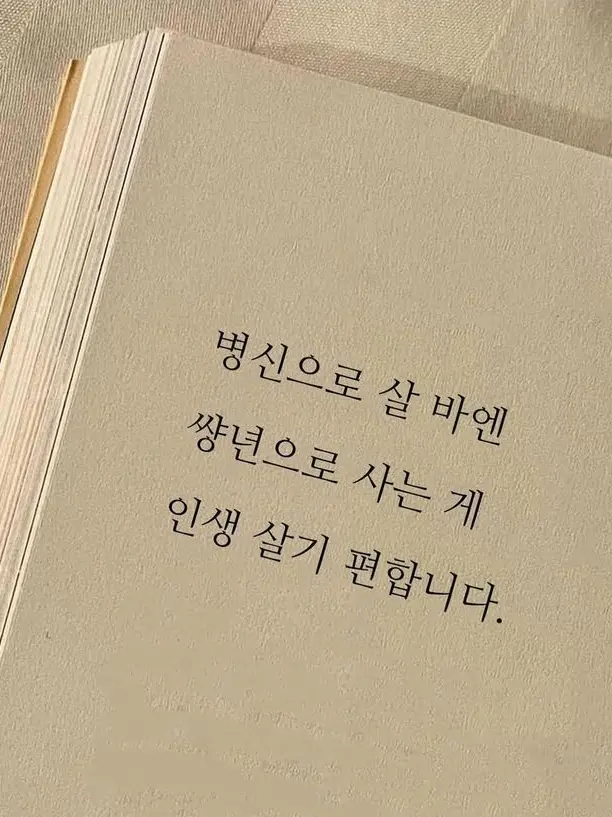 병신으로 살 바엔
썅년으로 사는 게
인생 살기 편합니다.